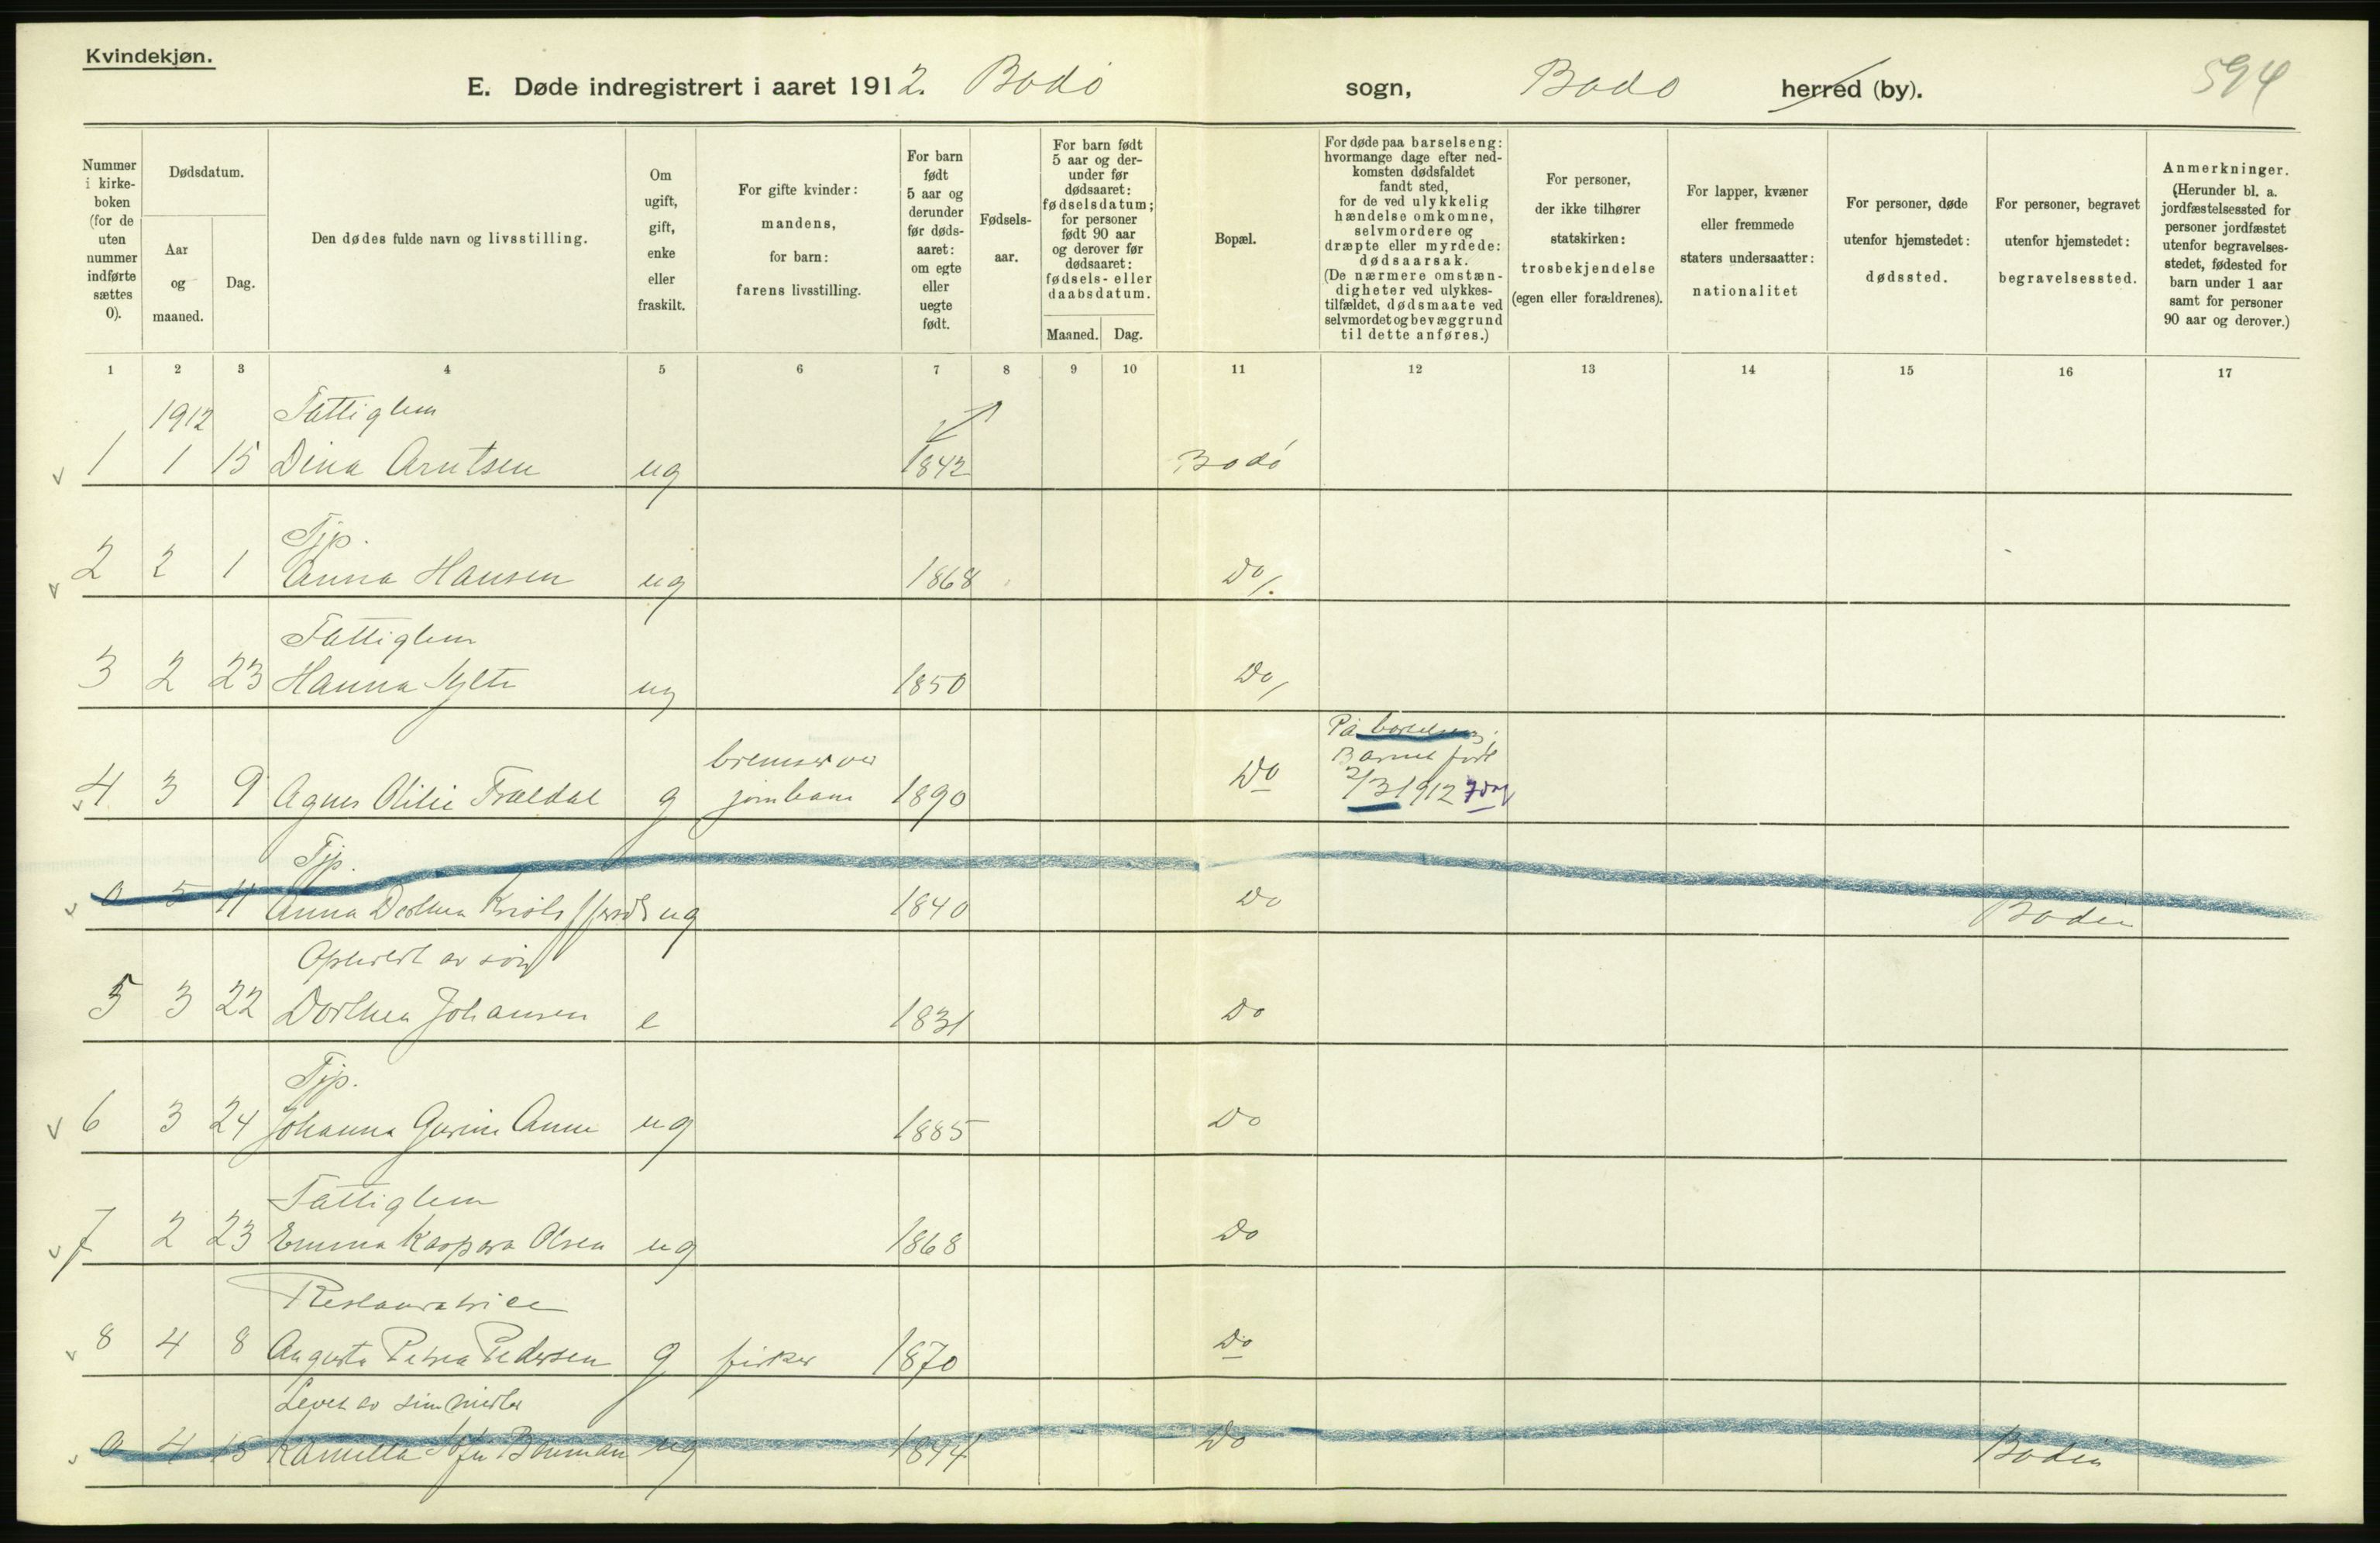 Kvindekjøn.
E. Døde indregistrert i aaret 1912. Bodø sogn, Bodø herred (by).
594
Nummer i kirke-boken (for de uten nummer indførte sættes 0).
Dødsdatum.
Aar og maaned.
Dag.
Den dødes fulde navn og livsstilling.
Om ugift, gift, enke eller fraskilt.
For gifte kvinder: mandens, for barn: farens livsstilling.
For barn født 5 aar og derunder før døds-aaret: om egte eller uegte født.
Fødsels-aar.
For barn født 5 aar og der-under før dødsaaret: fødselsdatum; for personer født 90 aar og derover før dødsaaret: fødsels- eller daabsdatum.
Maaned. Dag.
Bopæl.
For døde paa barselseng: hvormange dage efter ned-komsten dødsfaldet fandt sted, for de ved ulykkelig hændelse omkomne, selvmordere og dræpte eller myrdede: dødsaarsak. (De nærmere omstæn-digheter ved ulykkes-tilfældet, dødsmaate ved selvmordet og bevæggrund til dette anføres.)
For personer, der ikke tilhører statskirken: trosbekjendelse (egen eller forældrenes).
For lapper, kvæner eller fremmede staters undersaatter: nationalitet
For personer, døde utenfor hjemstedet: dødssted.
For personer, begravet utenfor hjemstedet: begravelsessted.
Anmerkninger. (Herunder bl. a. jordfæstelsessted for personer jordfæstet utenfor begravelses-stedet, fødested for barn under 1 aar samt for personer 90 aar og derover.)
1 2 3 4 5 6 7 8 9 10 11 12 13 14 15 16 17
1912 Fattiglem
1 1 15 Dina Arntsen ug 1842 Bodø
Tjp.
2 2 1 Anna Hansen ug 1868 Do
Fattiglem
3 2 23 Hanna ug 1850 Do
bremser ved På barselseng.
Barnet født
4 3 9 Agnes Otilie Fraldal g jernbane 1890 Do 2/3 1912 7 dag
Tjp.
0 5 11 Anna Dorthea ug 1840 Do Bodin
Opholdt av søn
5 3 22 Dorthea Johansen e 1831 Do
Tjp.
6 3 24 Johanna Gurine Anne ug 1885 Do
Fattiglem
7 2 23 Emma Kaspara Olsen ug 1868 Do
Restauratrice
8 4 8 Augusta Petrea Pedersen g fisker 1870 Do
Levet av sine midler
0 4 15 Kamilla Sofie ug 1844 Do Bodin